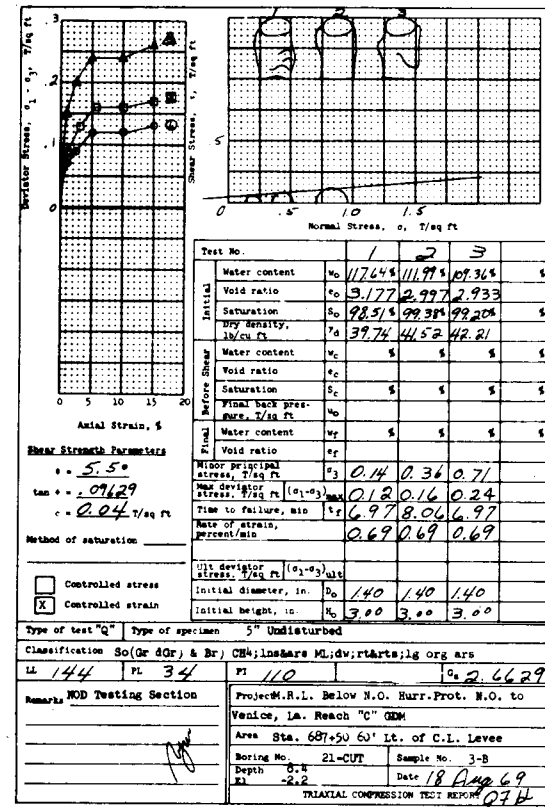 Deviator Stress, σ1 - σ3, T/sq ft
.3
.2
.1
0
0 5 10 15 20
Axial Strain, %
Shear Stress, τ, T/sq ft
1 2 3
.5
0 .5 1.0 1.5
Normal Stress, σ, T/sq ft
Shear Strength Parameters
φ = 5.5°
tan φ = .09629
c = 0.04 T/sq ft
Method of saturation
Controlled stress
X Controlled strain
Test No. 1 2 3
Initial
Water content wo 117.64% 111.99% 109.36% %
Void ratio eo 3.177 2.997 2.933
Saturation So 98.51% 99.38% 99.20% %
Dry density, lb/cu ft γd 39.74 41.52 42.21
Before Shear
Water content wc % % % %
Void ratio ec
Saturation Sc % % % %
Final back pressure, T/sq ft uo
Final
Water content wf % % % %
Void ratio ef
Minor principal stress, T/sq ft σ3 0.14 0.36 0.71
Max deviator stress, T/sq ft (σ1-σ3)max 0.12 0.16 0.24
Time to failure, min tf 6.97 8.06 6.97
Rate of strain, percent/min 0.69 0.69 0.69
Ult deviator stress, T/sq ft (σ1-σ3)ult
Initial diameter, in. Do 1.40 1.40 1.40
Initial height, in. Ho 3.00 3.00 3.00
Type of test "Q" Type of specimen 5" Undisturbed
Classification So(Gr dGr) & Br) CH4;lns&ars ML;dw;rt&rts;lg org ars
LL 144 PL 34 PI 110 Gs 2.6629
Remarks NOD Testing Section
Project M.R.L. Below N.O. Hurr.Prot. N.O. to
Venice, La. Reach "C" GDM
Area Sta. 687+50 60' Lt. of C.L. Levee
Boring No. 21-CUT Sample No. 3-B
Depth 8.4
El -2.2 Date 18 Aug 69
TRIAXIAL COMPRESSION TEST REPORT